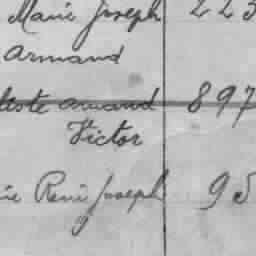 Marie Joseph 223
Armand
leste amand 897
Victor
ie René Joseph 95